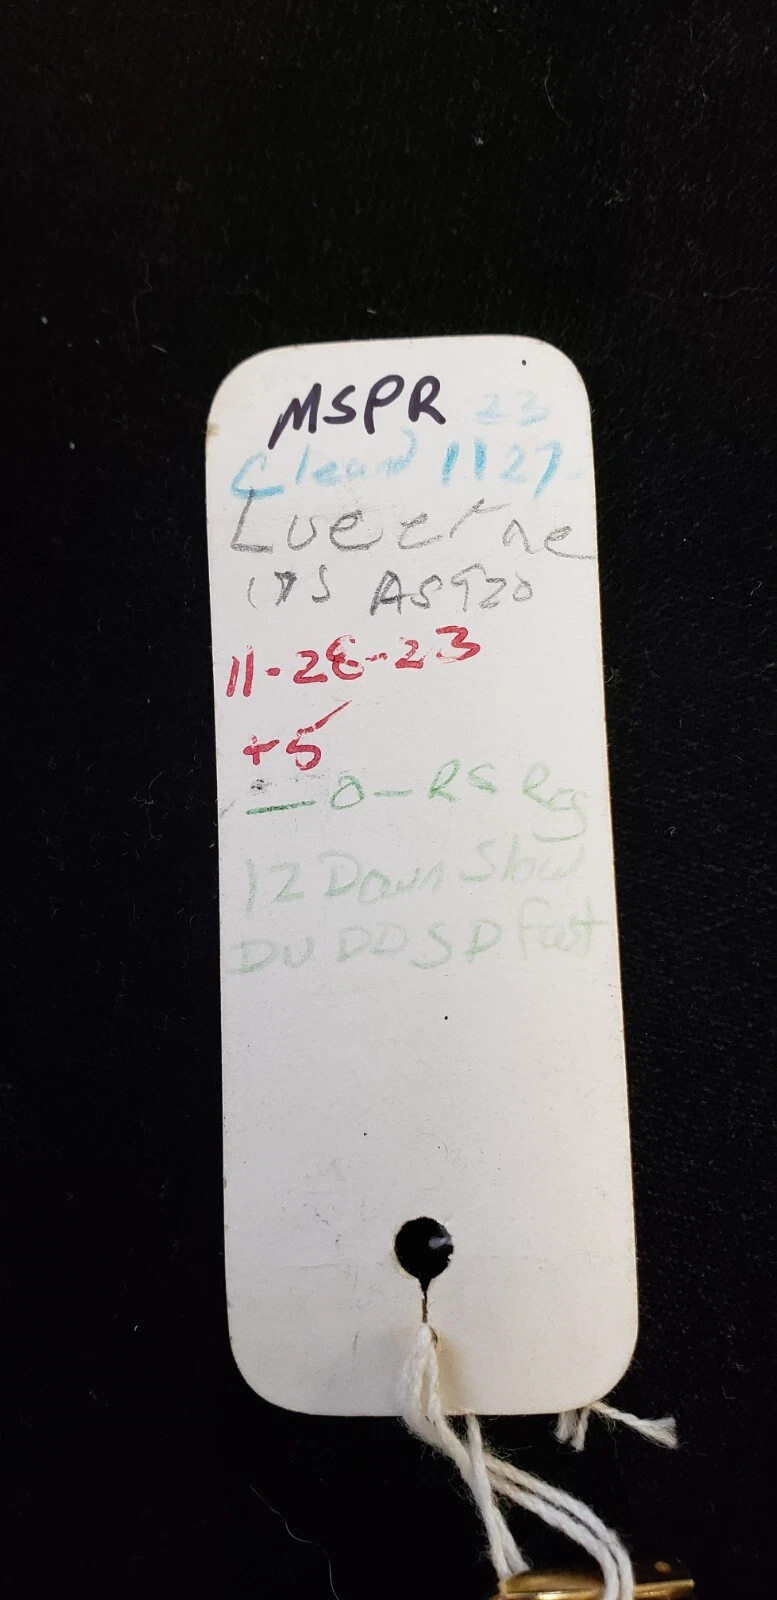 MSPR 23
Cleand 1127-
Lucerne
17S AS920
11-28-23
+5
— 0 — RS Reg
12 Down Slow
DU DD SD Fast